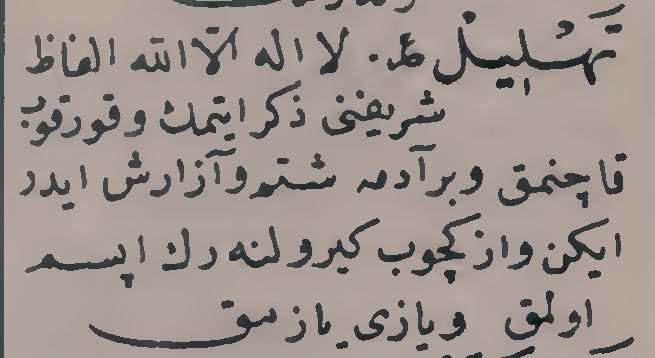 تهليل ع. لا اله الا الله الفاظ
شريفنى ذكر ايتمك وقورقوب
قاچنمق وبر آدمه شتم وآزارش ايدر
ايكن واز كچوب كيرولنه رك اپسم
اولمق ويازى يازمق